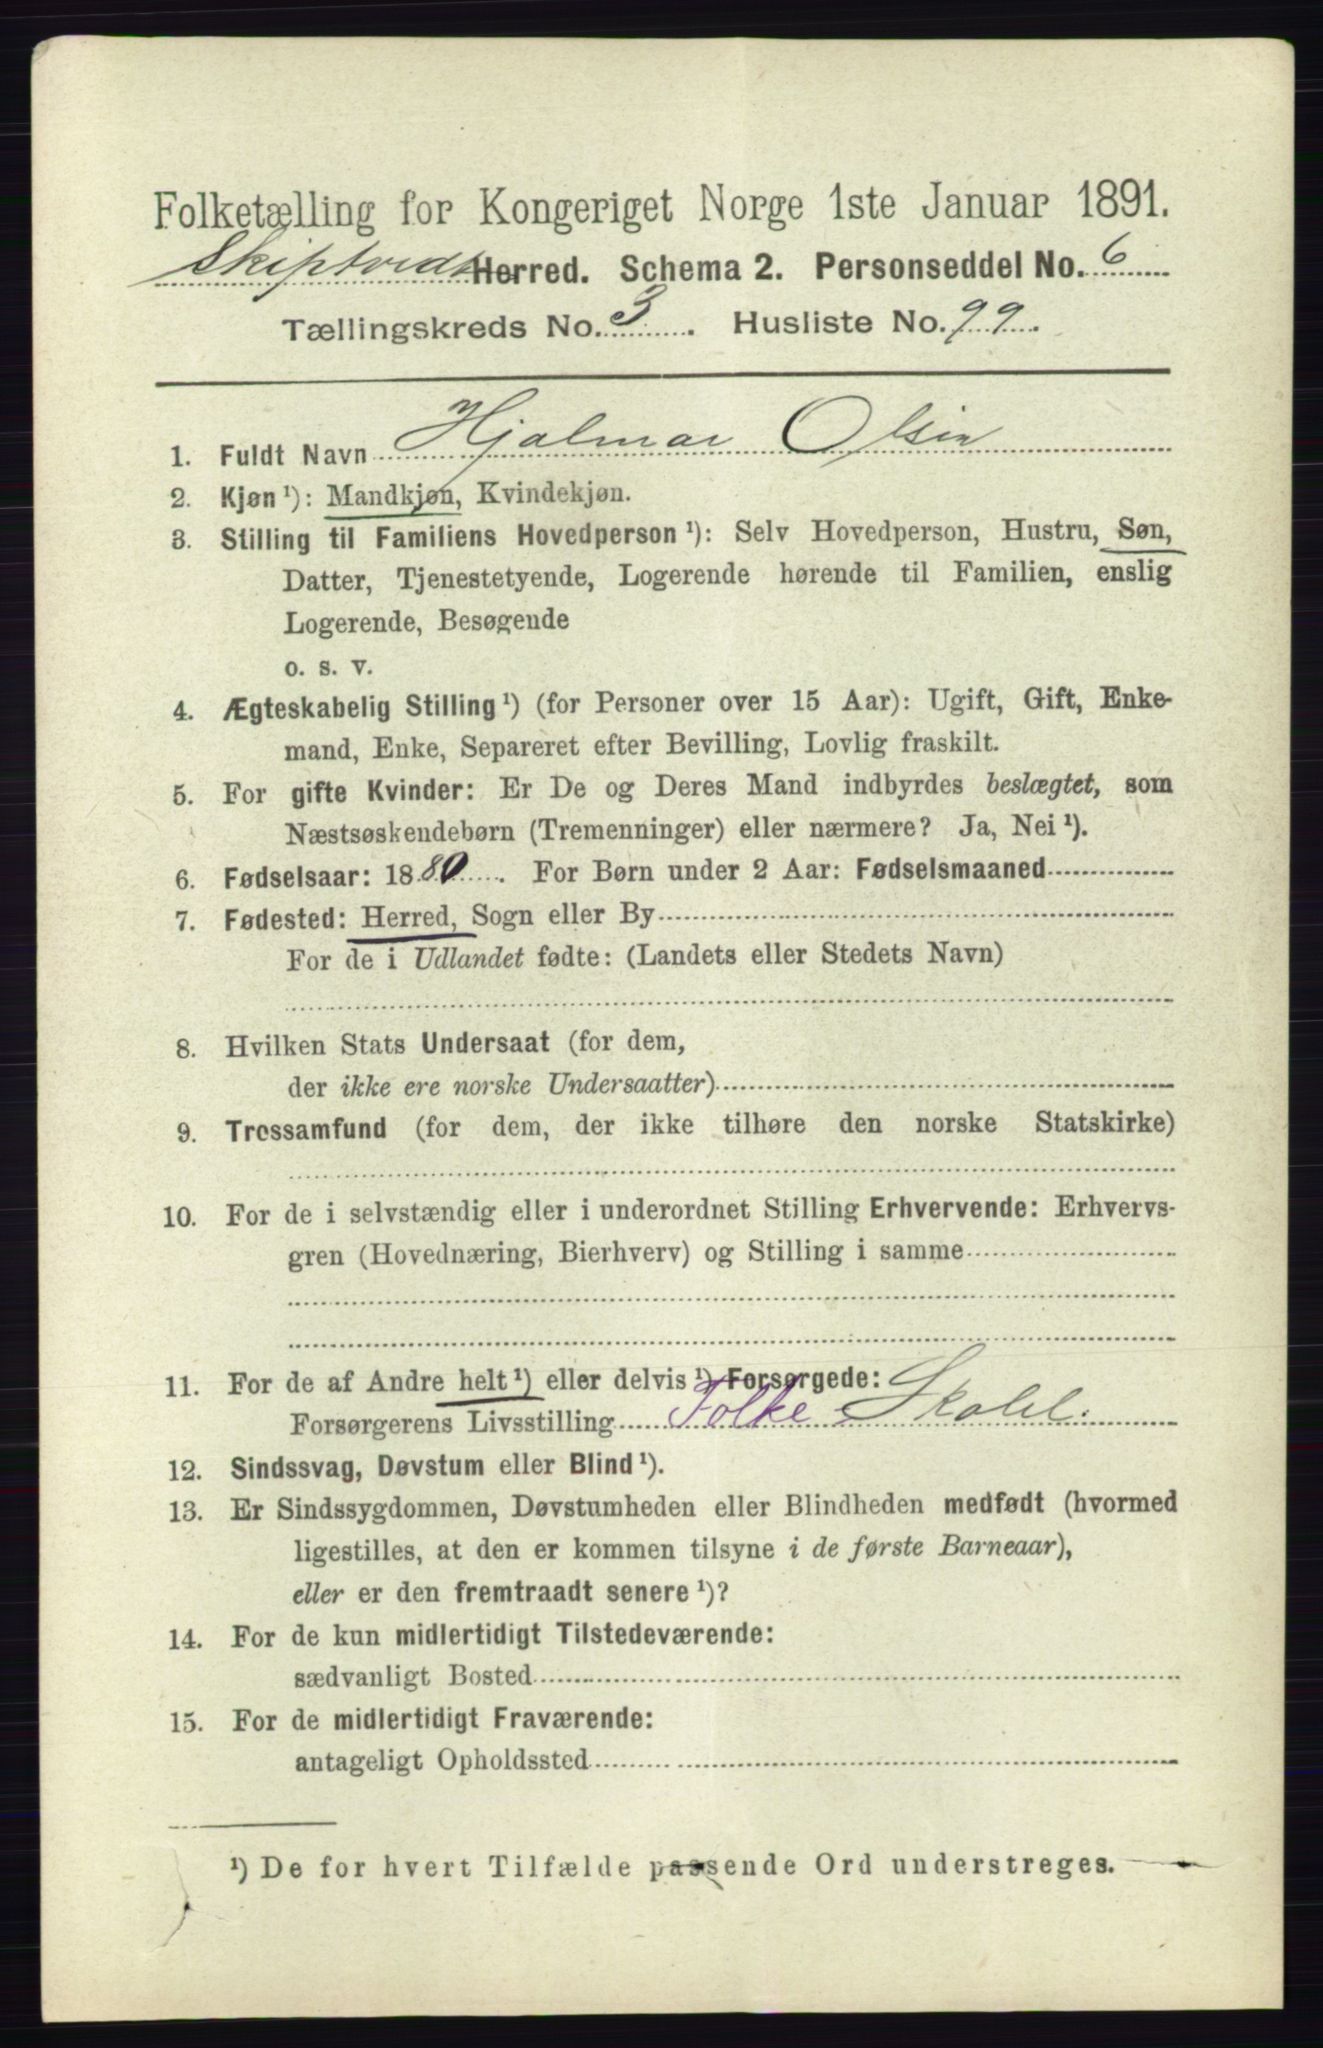 Folketælling for Kongeriget Norge 1ste Januar 1891.
Skiptvedt Herred. Schema 2. Personseddel No. 6
Tællingskreds No. 3. Husliste No. 99.
1. Fuldt Navn Hjalmar Olsen
2. Kjøn ¹): Mandkjøn, Kvindekjøn.
3. Stilling til Familiens Hovedperson ¹): Selv Hovedperson, Hustru, Søn,
Datter, Tjenestetyende, Logerende hørende til Familien, enslig
Logerende, Besøgende
o. s. v.
4. Ægteskabelig Stilling ¹) (for Personer over 15 Aar): Ugift, Gift, Enke-
mand, Enke, Separeret efter Bevilling, Lovlig fraskilt.
5. For gifte Kvinder: Er De og Deres Mand indbyrdes beslægtet, som
Næstsøskendebørn (Tremenninger) eller nærmere? Ja, Nei ¹).
6. Fødselsaar: 1880. For Børn under 2 Aar: Fødselsmaaned
7. Fødested: Herred, Sogn eller By
For de i Udlandet fødte: (Landets eller Stedets Navn)
8. Hvilken Stats Undersaat (for dem,
der ikke ere norske Undersaatter)
9. Trossamfund (for dem, der ikke tilhøre den norske Statskirke)
10. For de i selvstændig eller i underordnet Stilling Erhvervende: Erhvervs-
gren (Hovednæring, Bierhverv) og Stilling i samme
11. For de af Andre helt ¹) eller delvis ¹) Forsørgede:
Forsørgerens Livsstilling Folke
12. Sindssvag, Døvstum eller Blind ¹).
13. Er Sindssygdommen, Døvstumheden eller Blindheden medfødt (hvormed
ligestilles, at den er kommen tilsyne i de første Barneaar),
eller er den fremtraadt senere ¹)?
14. For de kun midlertidigt Tilstedeværende:
sædvanligt Bosted
15. For de midlertidigt Fraværende:
antageligt Opholdssted
¹) De for hvert Tilfælde passende Ord understreges.